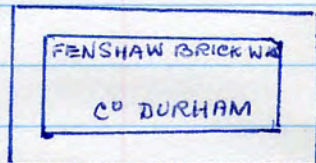 FENSHAW BRICK WKS
Cº DURHAM